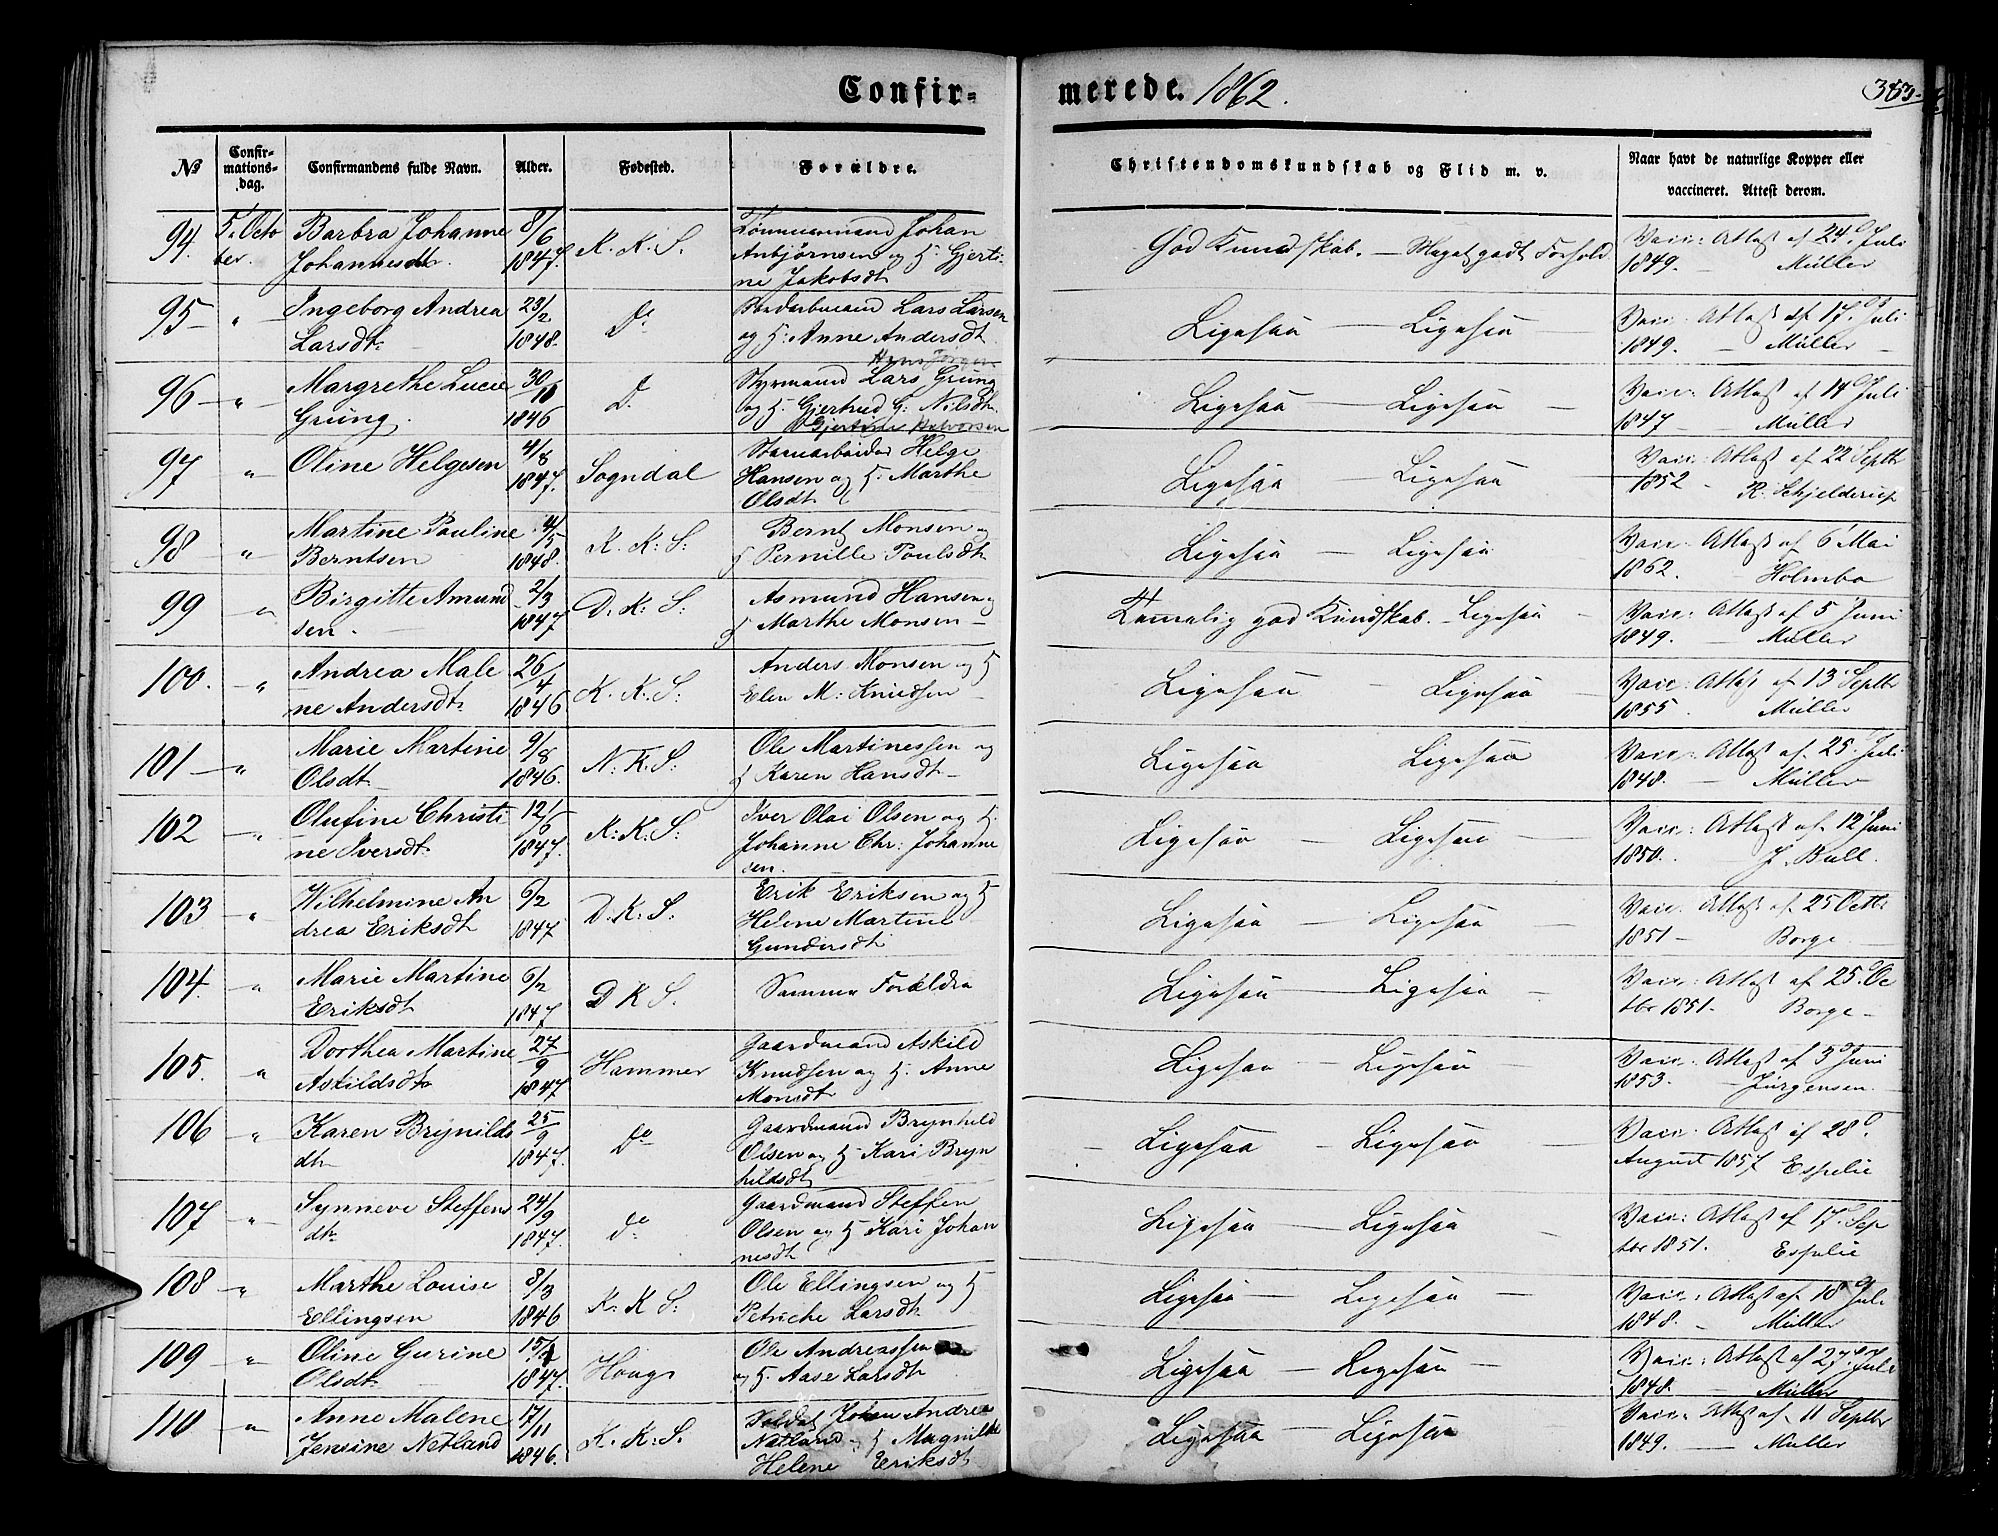 Confir-
merede. 1862.
383.
№
Confir-
mations-
dag.
Confirmandens fulde Navn.
Alder.
Fødested.
Forældre.
Christendomskundskab og Flid m. v.
Naar havt de naturlige Kopper eller
vaccineret. Attest derom.
94. 5. Octo Barbra Johanne 8/6 K. K. S. Tømmermand Johan God Kundskab. — Meget godt Forhold Vacc: Attest af 24d Juli
ber. Johannesdt. 1847. Anbjørnsen og H. Gjerti 1849. — Müller
ne Jakobsdt
95 — " Ingeborg Andrea 23/2 Do Lars Larsen Ligesaa — Ligesaa Vacc: Attest af 17d Juli
Larsdt. 1848. og H: Anne Andersdt 1849. — Müller —
Hans Jørgen
96 — " Margrethe Lucie 30/10 D. Styrmand Lars Grung Ligesaa — Ligesaa — Vacc: Attest af 14d Juli
Grung. 1846 og H. Gjertrud G: Nilsdt. 1847 — Müller
Gjertine Halvorsen
97 " Oline Helgesen 4/8 Sogndal Helge Ligesaa — Ligesaa — Vacc: Attest af 22 Septb
1847. Hansen og H. Marthe 1852 — R. Schjelderup
Olsdt
98 " Martine Pauline 4/5 K. K: S: Bernt Monsen og Ligesaa — Ligesaa Vacc: Attest af 6 Mai
Berntsen 1848. H Pernille Poulsdt 1862. — Holmbo
99 " Birgitte Amund 2/3 D. K: S: Asmund Hansen og Temmelig god Kundskab. — Ligesaa — Vacc: Attest af 5 Juni
sen. — 1847 H Marthe Monsen — 1849. — Müller
100. " Andrea Male 26/4 K. K. S: Anders Monsen og H Ligesaa — Ligesaa — Vacc: Attest af 13 Septbr
ne Andersdt. 1846 Elen M: Knudsen — 1855. Müller
101 — " Marie Martine 9/8 N. K. S: Ole Martinessen og Ligesaa Ligesaa Vacc: Attest af 25. Juli
Olsdt 1846. H Karen Hansdt — 1848. — Müller
102 — " Olufine Christi 12/6 K: K: S: Iver Olai Olsen og H. Ligesaa — Ligesaa — Vacc: Attest af 12 Juni
ne Iversdt. 1847. Johanne Chr: Johanne 1850. — J. Bull.
sen.
103 " Wilhelmine An 6/2 D. K. S. Erik Eriksen og H Ligesaa — Ligesaa — Vacc: Attest af 25 Octbr
drea Eriksdt 1847 Helene Martine 1851 — Borge
Gundersdt
104. " Marie Martine 6/2 D K S. Samme Forældre Ligesaa — Ligesaa — Vacc: Attest af 25. Oc
Eriksdt 1847 tbr 1851. Borge —
105. " Dorthea Martine 27/9 Hammer Gaardmand Askild Ligesaa — Ligesaa — Vacc: Attest af 3d Juni
Askildsdt 1847 Knudsen og H. Anne 1853. — Jürgensen.
Monsdt
106 " Karen Brynilds 25/9 Do Gaardmand Brynhild — Ligesaa — Ligesaa — Vacc: Attest af 28d
dt 1847. Olsen og H Kari Bryn August 1857 Espelie
hildsdt
107 " Synneve Steffens 24/9 do Gaardmand Steffen Ligesaa — Ligesaa — Vacc: Attest af 17d Sep
dt 1847. Olsen og H Kari Johan tbr 1851. Espelie
nesdt
108 " Marthe Louise 8/3 K: K S: Ole Ellingsen og H Ligesaa — Ligesaa — Vacc: Attest af 18d Juli
Ellingsen 1846 Petriche Larsdt 1848. — Müller
109 " Oline Gurine Houg Ole Andreassen Ligesaa — Ligesaa — Vacc: Attest af 27d Juli
Olsdt 1847. og H. Aase Larsdt 1848. — Müller
110 " Anne Malene 17/11 K. K: S. Soldat Johan Andrea Ligesaa — Ligesaa Vacc: Attest af 11 Septbr
Jensine Netland 1846. Netland — H Magnilde 1849. — Müller
Helene Eriksdt